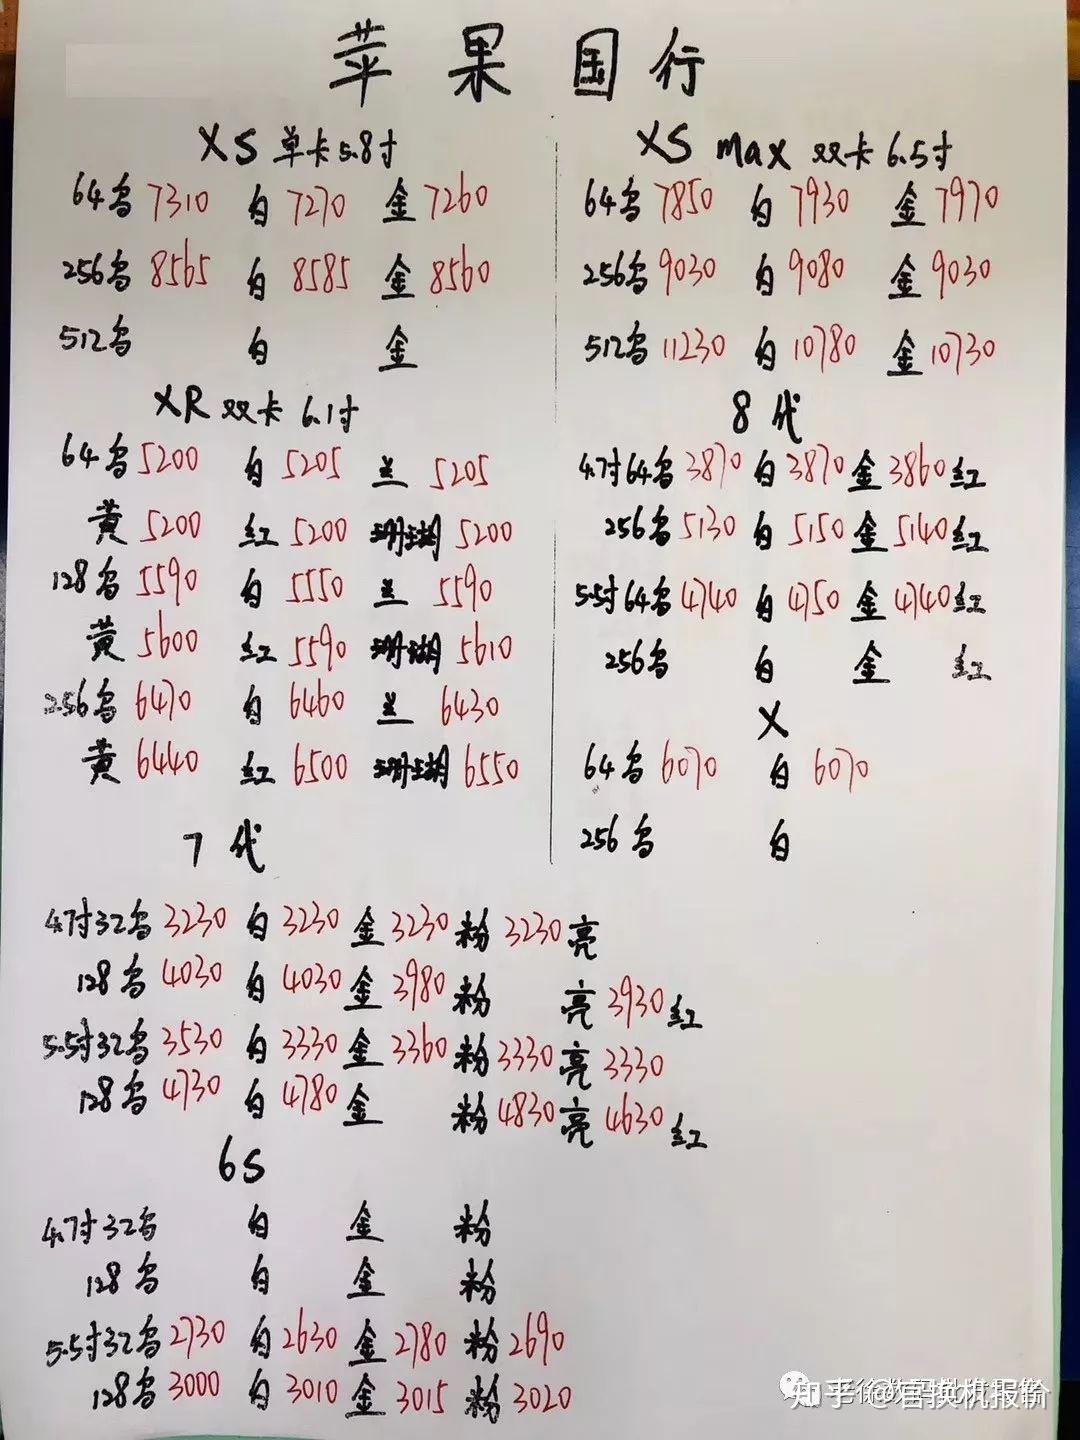 苹果国行
XS 单卡5.8寸
64乌 7310 白 7270 金 7260
256乌 8565 白 8585 金 8560
512乌 白 金
XR 双卡 6.1寸
64乌 5200 白 5205 兰 5205
黄 5200 红 5200 珊瑚 5200
128乌 5590 白 5550 兰 5590
黄 5600 红 5590 珊瑚 5610
256乌 6470 白 6460 兰 6430
黄 6440 红 6500 珊瑚 6550
XS max 双卡 6.5寸
64乌 7850 白 7930 金 7970
256乌 9030 白 9080 金 9030
512乌 11230 白 10780 金 10730
8代
4.7寸64乌 3870 白 3870 金 3860 红
256乌 5130 白 5150 金 5140 红
5.5寸64乌 4740 白 4750 金 4740 红
256乌 白 金 红
X
64乌 6070 白 6070
256乌 白
7代
4.7寸32乌 3230 白 3230 金 3230 粉 3230 亮
128乌 4030 白 4030 金 3980 粉 亮 3930 红
5.5寸32乌 3530 白 3330 金 3360 粉 3330 亮 3330
128乌 4730 白 4780 金 粉 4830 亮 4630 红
6S
4.7寸32乌 白 金 粉
128乌 白 金 粉
5.5寸32乌 2730 白 2630 金 2780 粉 2690
128乌 3000 白 3010 金 3015 粉 3020
知乎 @君换机报价